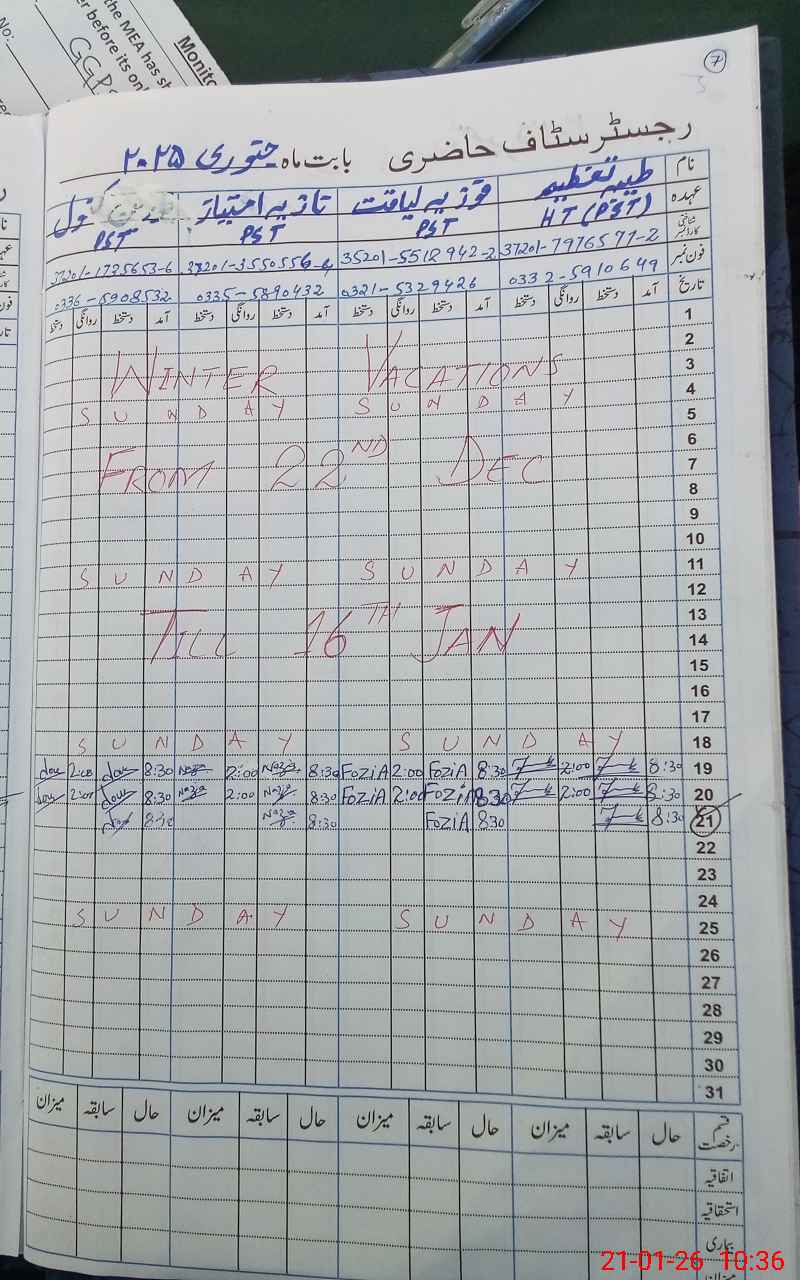 Monito
the MEA has sh
er before its onl
No:
GGP
7
رجسٹر سٹاف حاضری بابت ماہ جنوری ۲۰۲۵
نام طیبہ تعظیم فوزیہ لیاقت نازیہ امتیاز کنول
عہدہ HT (PST) PST PST PST
شناختی کارڈ نمبر 37201-7976577-2 35201-5512942-2 37201-3550556-4 37201-1725653-6
فون نمبر 0332-5910649 0321-5329426 0335-5890432 0336-5908532
تاریخ آمد دستخط روانگی دستخط آمد دستخط روانگی دستخط آمد دستخط روانگی دستخط آمد دستخط روانگی دستخط
1
2
WINTER VACATIONS 3
SUNDAY SUNDAY 4
5
6
FROM 22ND DEC 7
8
9
10
SUNDAY SUNDAY 11
12
13
TILL 16TH JAN 14
15
16
17
SUNDAY SUNDAY 18
2:00 8:30 2:00 Nazia 8:30 FoziA 2:00 FoziA 8:30 2:00 8:30 19
2:00 8:30 Nazia 2:00 Nazia 8:30 FoziA 2:00 FoziA 8:30 2:00 8:30 20
8:30 Nazia 8:30 FoziA 830 8:30 21
22
23
24
SUNDAY SUNDAY 25
26
27
28
29
30
31
قسم رخصت حال سابقہ میزان حال سابقہ میزان حال سابقہ میزان حال سابقہ میزان
اتفاقیہ
استحقاقیہ
بیماری
میزان
21-01-26 10:36